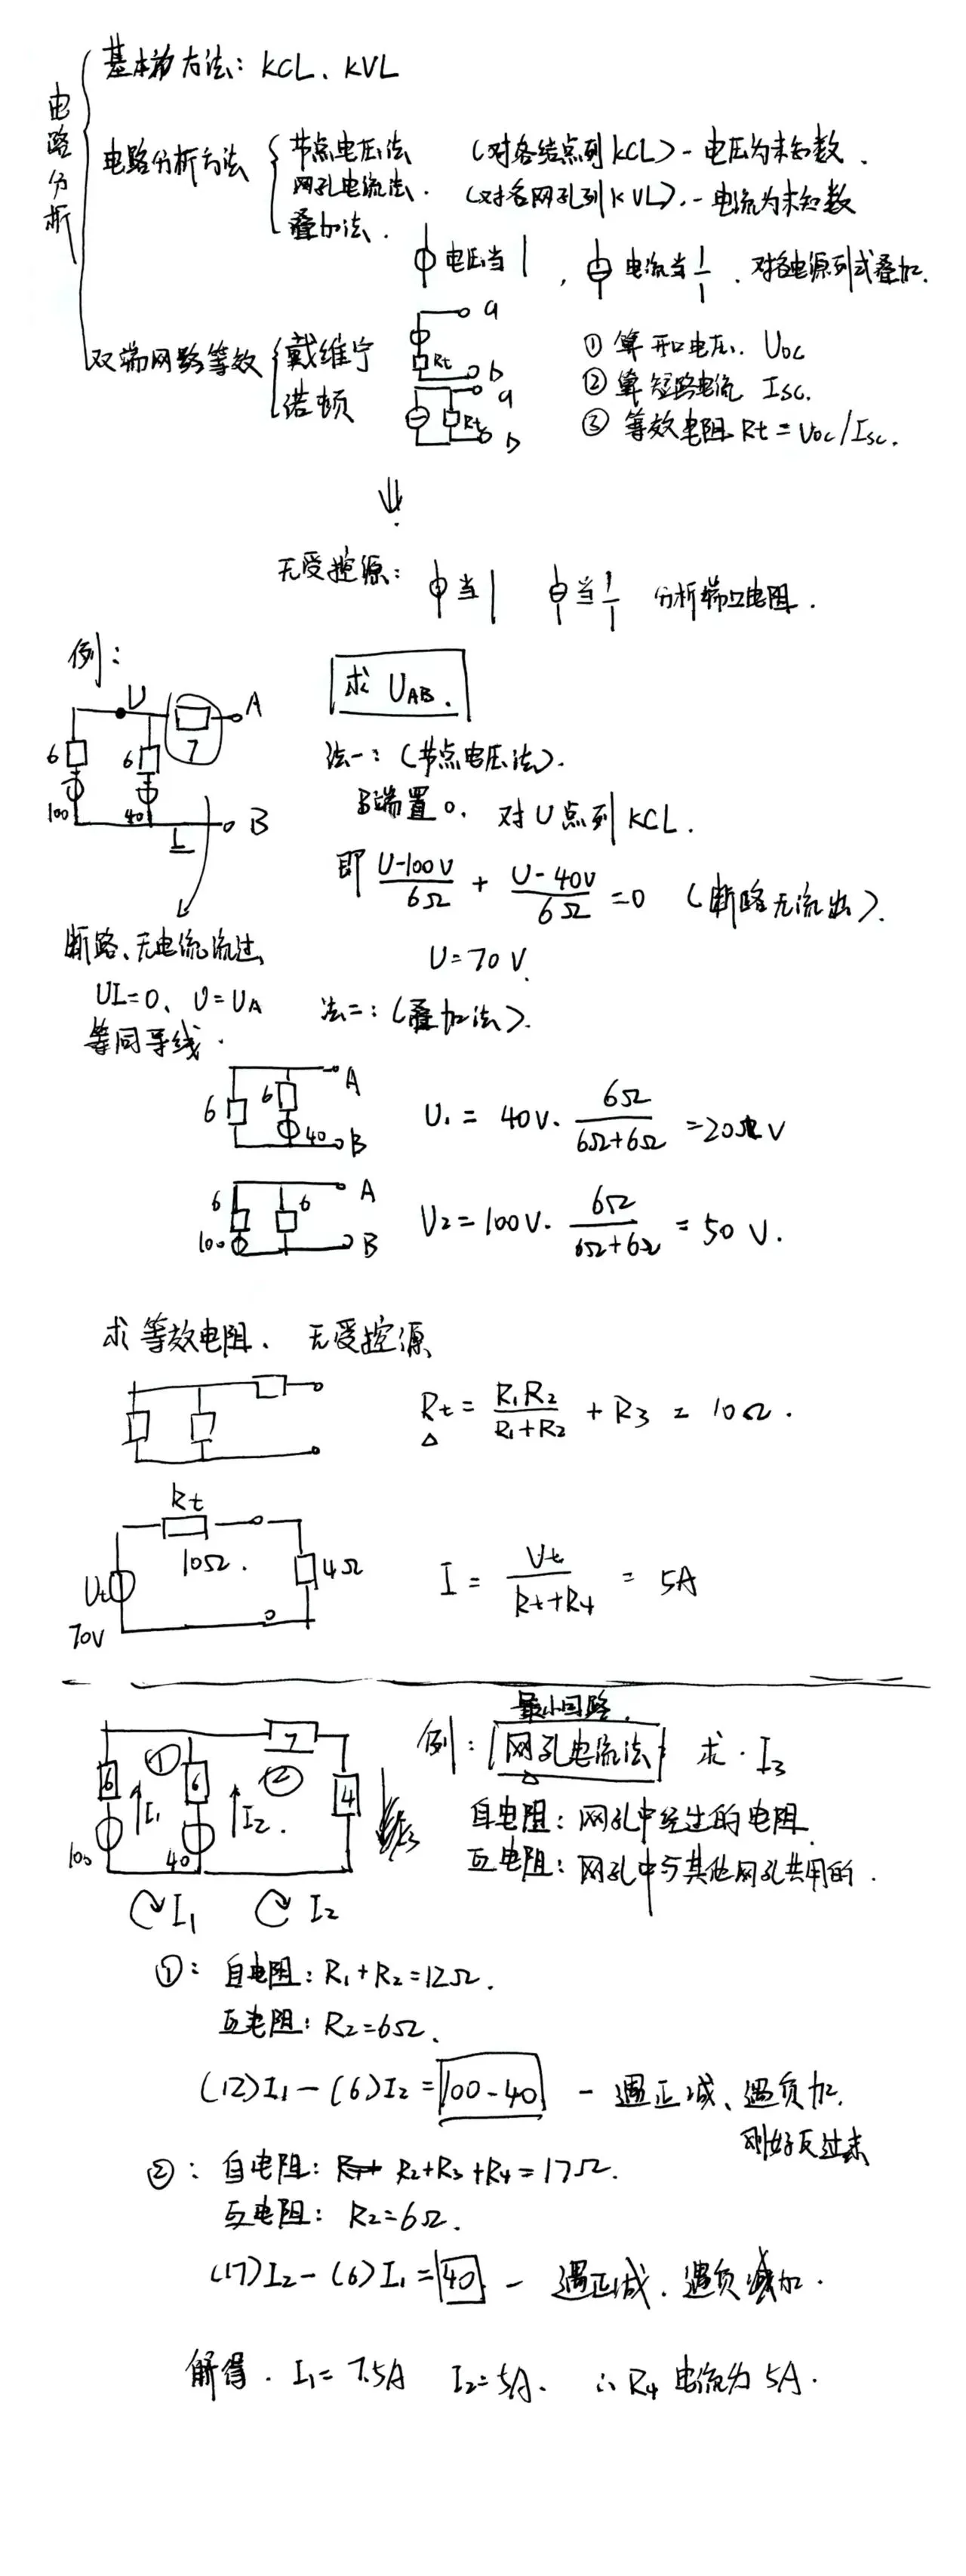 电路分析
基本的方法：KCL、KVL
电路分析方法
节点电压法 （对各结点列KCL）- 电压为未知数.
网孔电流法. （对各网孔列KVL）. - 电流为未知数
叠加法.
电压当 | , 电流当 . 对各电源列式叠加.
双端网路等效
戴维宁
诺顿
a
Rt
b
a
Rt
b
① 算开口电压. Uoc
② 算短路电流 Isc.
③ 等效电阻 Rt = Uoc/Isc.
⇓
无受控源： 当 | 当 分析端口电阻.
例：
求 UAB.
U A
6 6 7
100 40 B
法一：（节点电压法）.
B端置0. 对U点列KCL.
即 U-100V/6Ω + U-40V/6Ω = 0 （断路无流出）.
断路、无电流流过
U=70V.
UI=0、U=UA
等同导线.
法二：（叠加法）.
6 6 A
40 B
U₁ = 40V· 6Ω/6Ω+6Ω =20V
6 6 A
100 B
U2=100V· 6Ω/6Ω+6Ω = 50 V.
求等效电阻. 无受控源
Rt = R₁R₂/R₁+R₂ + R3 = 10Ω.
Rt
10Ω.
4Ω
Ut
70V
I = Ut/Rt+R4 = 5A
最小回路.
例： 网孔电流法 求. I3
7
① ②
6 6 4
I₁ I2.
100 40
I₁ I2
自电阻：网孔中经过的电阻.
互电阻：网孔中与其他网孔共用的.
①： 自电阻：R₁+R₂=12Ω.
互电阻：R2=6Ω.
(12)I₁-(6)I2=100-40 - 遇正减、遇负加.
刚好反过来
②： 自电阻： R2+R3+R4=17Ω.
互电阻： R2=6Ω.
(17)I2-(6)I₁=40. - 遇正减. 遇负加.
解得. I₁= 7.5A I2=5A. ∴R4 电流为 5A.